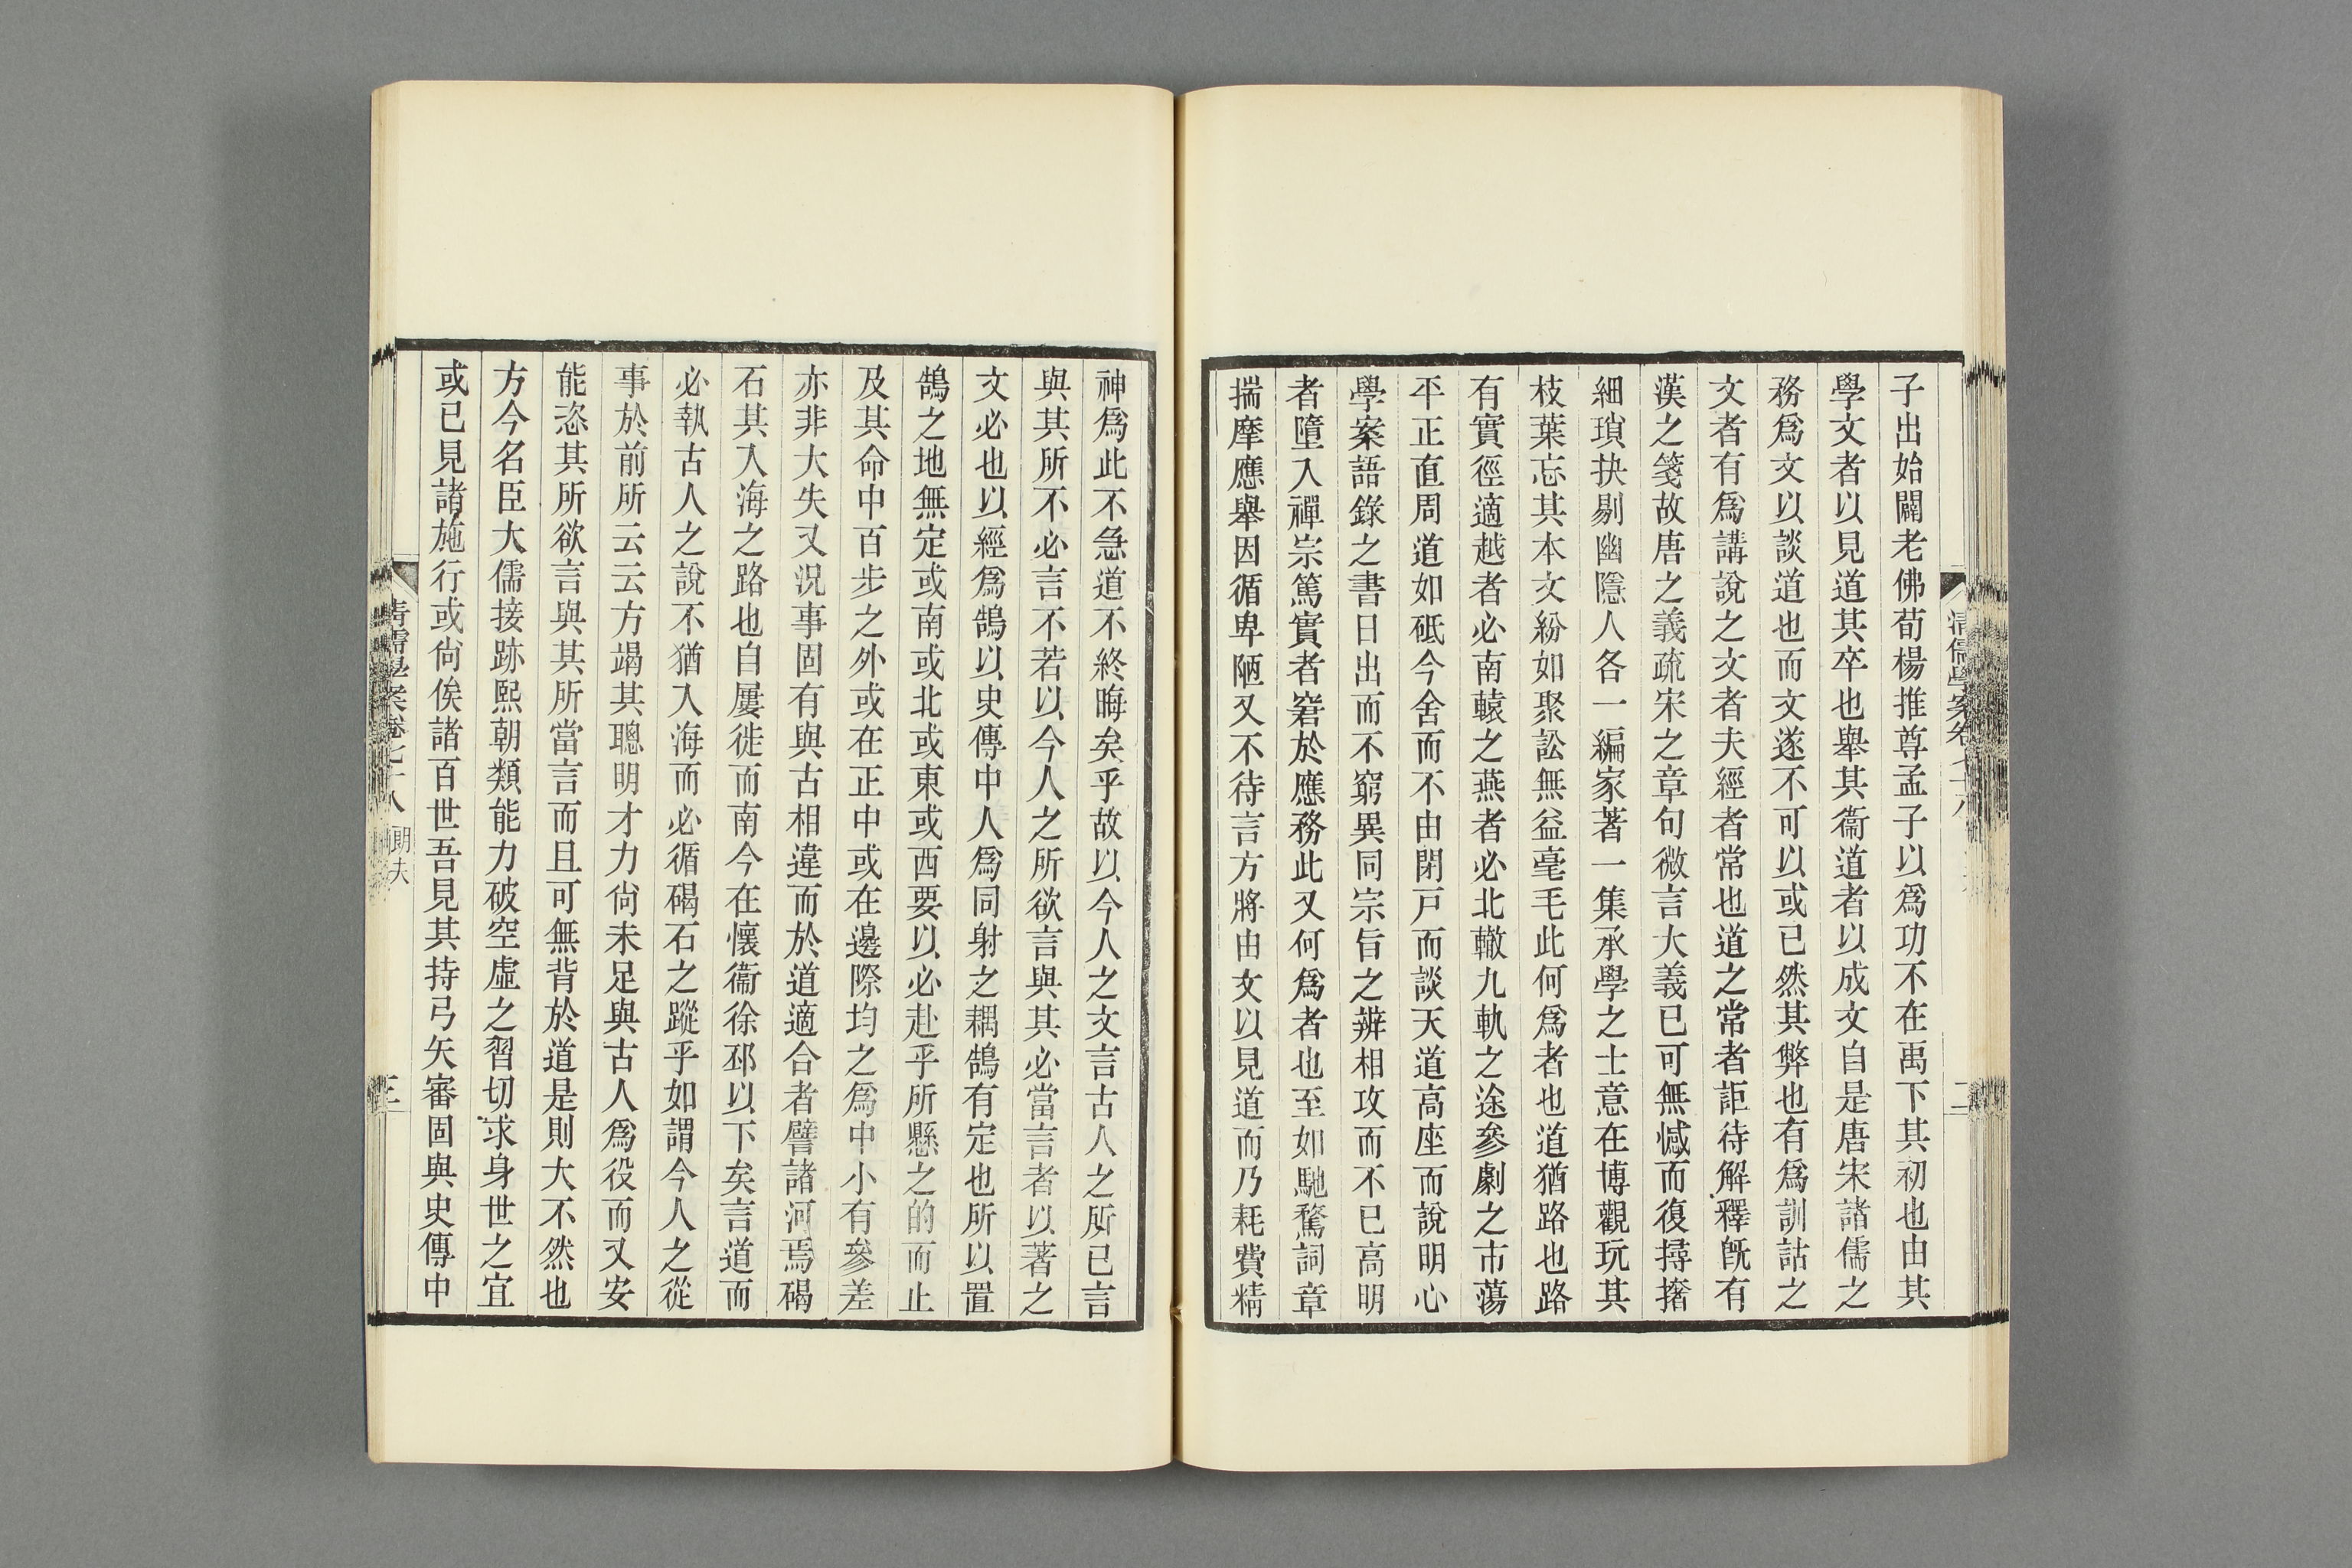 子出始闢老佛荀楊推尊孟子以爲功不在禹下其初也由其
學文者以見道其卒也舉其衞道者以成文自是唐宋諸儒之
務爲文以談道也而文遂不可以或已然其弊也有爲訓詁之
文者有爲講說之文者夫經者常也道之常者詎待解釋旣有
漢之箋故唐之義疏宋之章句微言大義已可無憾而復撏撦
細瑣抉剔幽隱人各一編家著一集承學之士意在博觀玩其
枝葉忘其本文紛如聚訟無益毫毛此何爲者也道猶路也路
有實徑適越者必南轅之燕者必北轍九軌之途參劇之市蕩
平正直周道如砥今舍而不由閉戸而談天道高座而說明心
學案語錄之書日出而不窮異同宗旨之辨相攻而不已高明
者墮入禪宗篤實者窘於應務此又何爲者也至如馳騖詞章
揣摩應舉因循卑陋又不待言方將由文以見道而乃耗費精
清儒學案卷七十八
二
神爲此不急道不終晦矣乎故以今人之文言古人之所已言
與其所不必言不若以今人之所欲言與其必當言者以著之
文必也以經爲鵠以史傳中人爲同射之耦鵠有定也所以置
鵠之地無定或南或北或東或西要以必赴乎所懸之的而止
及其命中百步之外或在正中或在邊際均之爲中小有參差
亦非大失又況事固有與古相違而於道適合者譬諸河焉碣
石其入海之路也自屢徙而南今在懷衞徐邳以下矣言道而
必執古人之說不猶入海而必循碣石之蹤乎如謂今人之從
事於前所云云方竭其聰明才力尙未足與古人爲役而又安
能恣其所欲言與其所當言而且可無背於道是則大不然也
方今名臣大儒接跡熙朝類能力破空虛之習切求身世之宜
或已見諸施行或尙俟諸百世吾見其持弓矢審固與史傳中
清儒學案卷七十八 朗夫
三